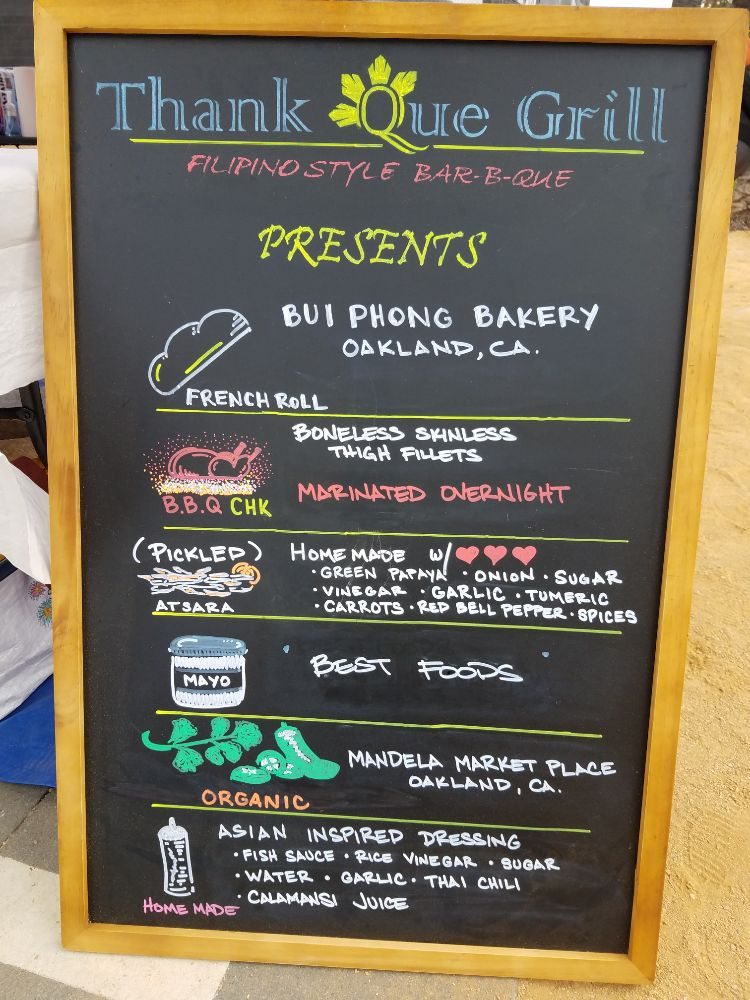 Thank Que Grill
FILIPINO STYLE BAR-B-QUE
PRESENTS
BUI PHONG BAKERY
OAKLAND, CA.
FRENCH ROLL
BONELESS SKINLESS
THIGH FILLETS
B.B.Q CHK
MARINATED OVERNIGHT
(PICKLED)
ATSARA
HOME MADE W/
• GREEN PAPAYA • ONION • SUGAR
• VINEGAR • GARLIC • TUMERIC
• CARROTS • RED BELL PEPPER • SPICES
MAYO
BEST FOODS
ORGANIC
MANDELA MARKET PLACE
OAKLAND, CA.
ASIAN INSPIRED DRESSING
• FISH SAUCE • RICE VINEGAR • SUGAR
• WATER • GARLIC • THAI CHILI
• CALAMANSI JUICE
HOME MADE